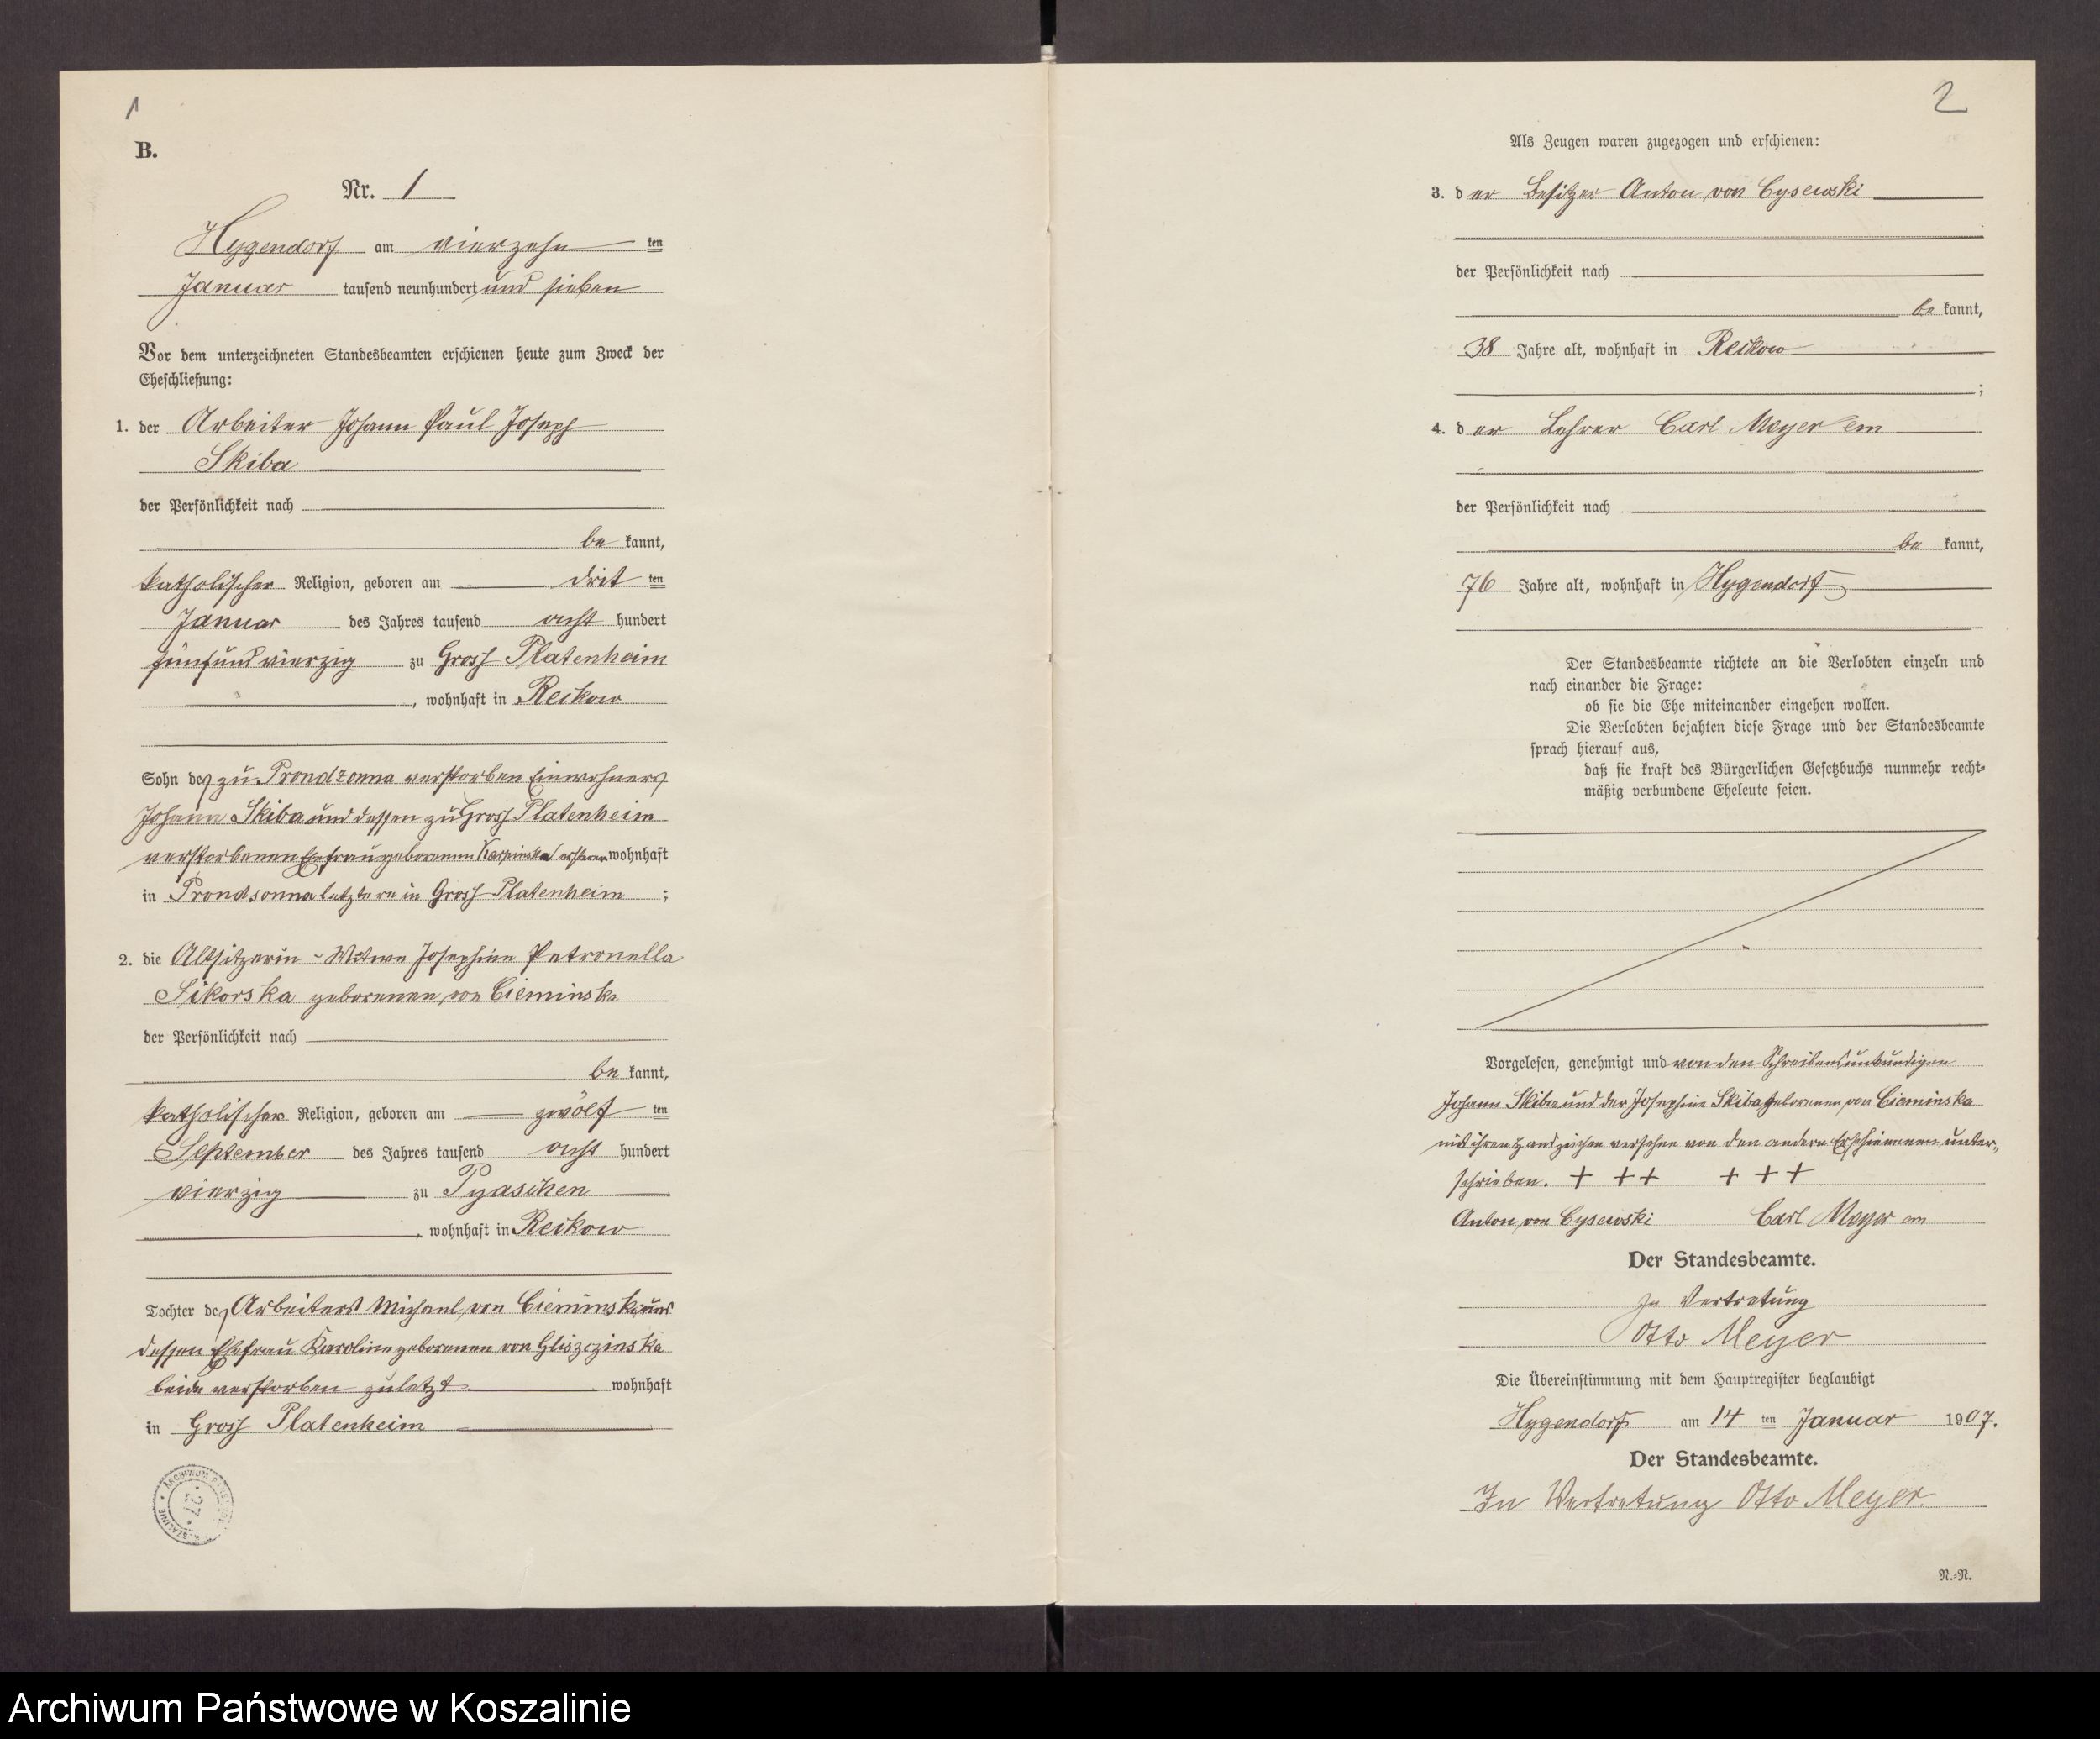 1
B.
Nr. 1
Hygendorf am vierzehnten
Januar tausend neunhundert und sieben
Vor dem unterzeichneten Standesbeamten erschienen heute zum Zweck der
Eheschließung:
1. der Arbeiter Johann Paul Joseph
Skiba
der Persönlichkeit nach
bekannt,
katholischer Religion, geboren am dritten
Januar des Jahres tausend acht hundert
fünfundvierzig zu Gross Platenheim
, wohnhaft in Reikow
Sohn des zu Prondzonna verstorben Einwohners
Johann Skiba und dessen zu Gross Platenheim
verstorbenen Ehefrau geborenen Karpinska ersterer wohnhaft
in Prondsonna letztere in Gross Platenheim ;
2. die Altsitzerin - Witwe Josephine Petronella
Sikorska geborenen von Cieminska
der Persönlichkeit nach
bekannt,
katholischer Religion, geboren am zwölften
September des Jahres tausend acht hundert
vierzig zu Pyaschen
, wohnhaft in Reikow
Tochter des Arbeiters Michael von Cieminski und
dessen Ehefrau Karoline geborenen von Gliszczinska
beide verstorben zuletzt wohnhaft
in Gross Platenheim
ARCHIWUM
27
2
Als Zeugen waren zugezogen und erschienen:
3. der Besitzer Anton von Cysewski
der Persönlichkeit nach
bekannt,
38 Jahre alt, wohnhaft in Reikow
;
4. der Lehrer Carl Meyer em
der Persönlichkeit nach
bekannt,
76 Jahre alt, wohnhaft in Hygendorf
Der Standesbeamte richtete an die Verlobten einzeln und
nach einander die Frage:
ob sie die Ehe miteinander eingehen wollen.
Die Verlobten bejahten diese Frage und der Standesbeamte
sprach hierauf aus,
daß sie kraft des Bürgerlichen Gesetzbuchs nunmehr recht-
mäßig verbundene Eheleute seien.
Vorgelesen, genehmigt und von den Schreibensunkundigen
Johann Skiba und der Josephine Skiba geborenen von Cieminska
mit ihren Handzeichen versehen von den andern Erschienenen unter-
schrieben. + ++ + ++
Anton von Cysewski Carl Meyer em
Der Standesbeamte.
In Vertretung
Otto Meyer
Die Übereinstimmung mit dem Hauptregister beglaubigt
Hygendorf am 14ten Januar 1907.
Der Standesbeamte.
In Vertretung Otto Meyer.
N.-N.
Archiwum Państwowe w Koszalinie